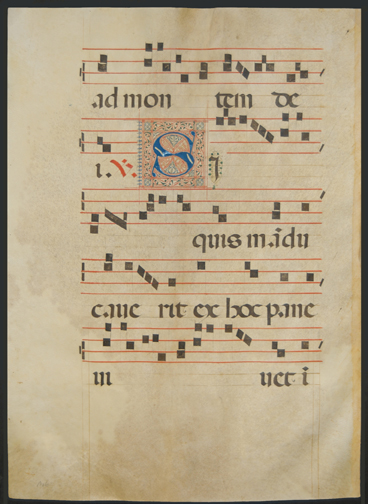 ad mon tem de
i. V. S I
quis m adu
caue rit ex hoc pane
m uet i